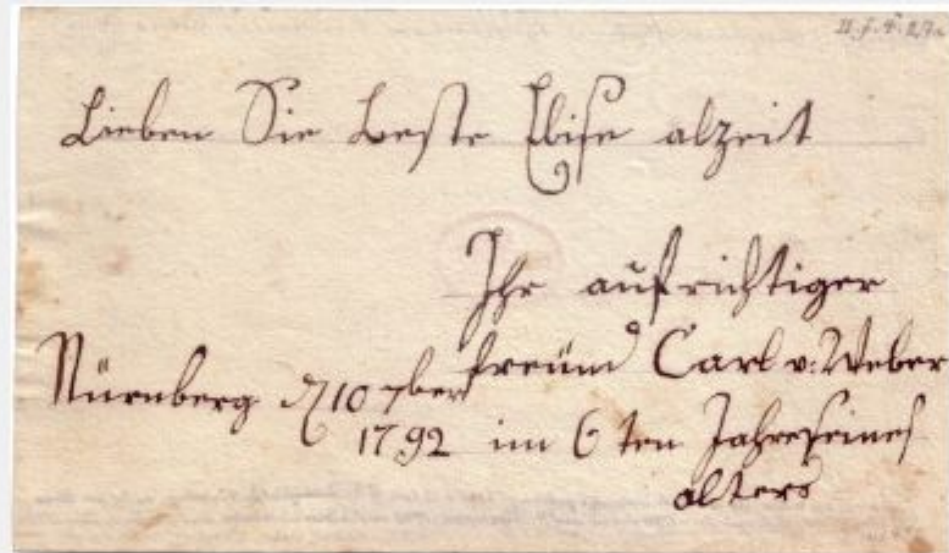 Lieben Sie beste Elise alzeit
Ihr aufrichtiger
freünd Carl v: Weber
Nürnberg d 10 7ber
1792 im 6 ten Jahre seines
alters